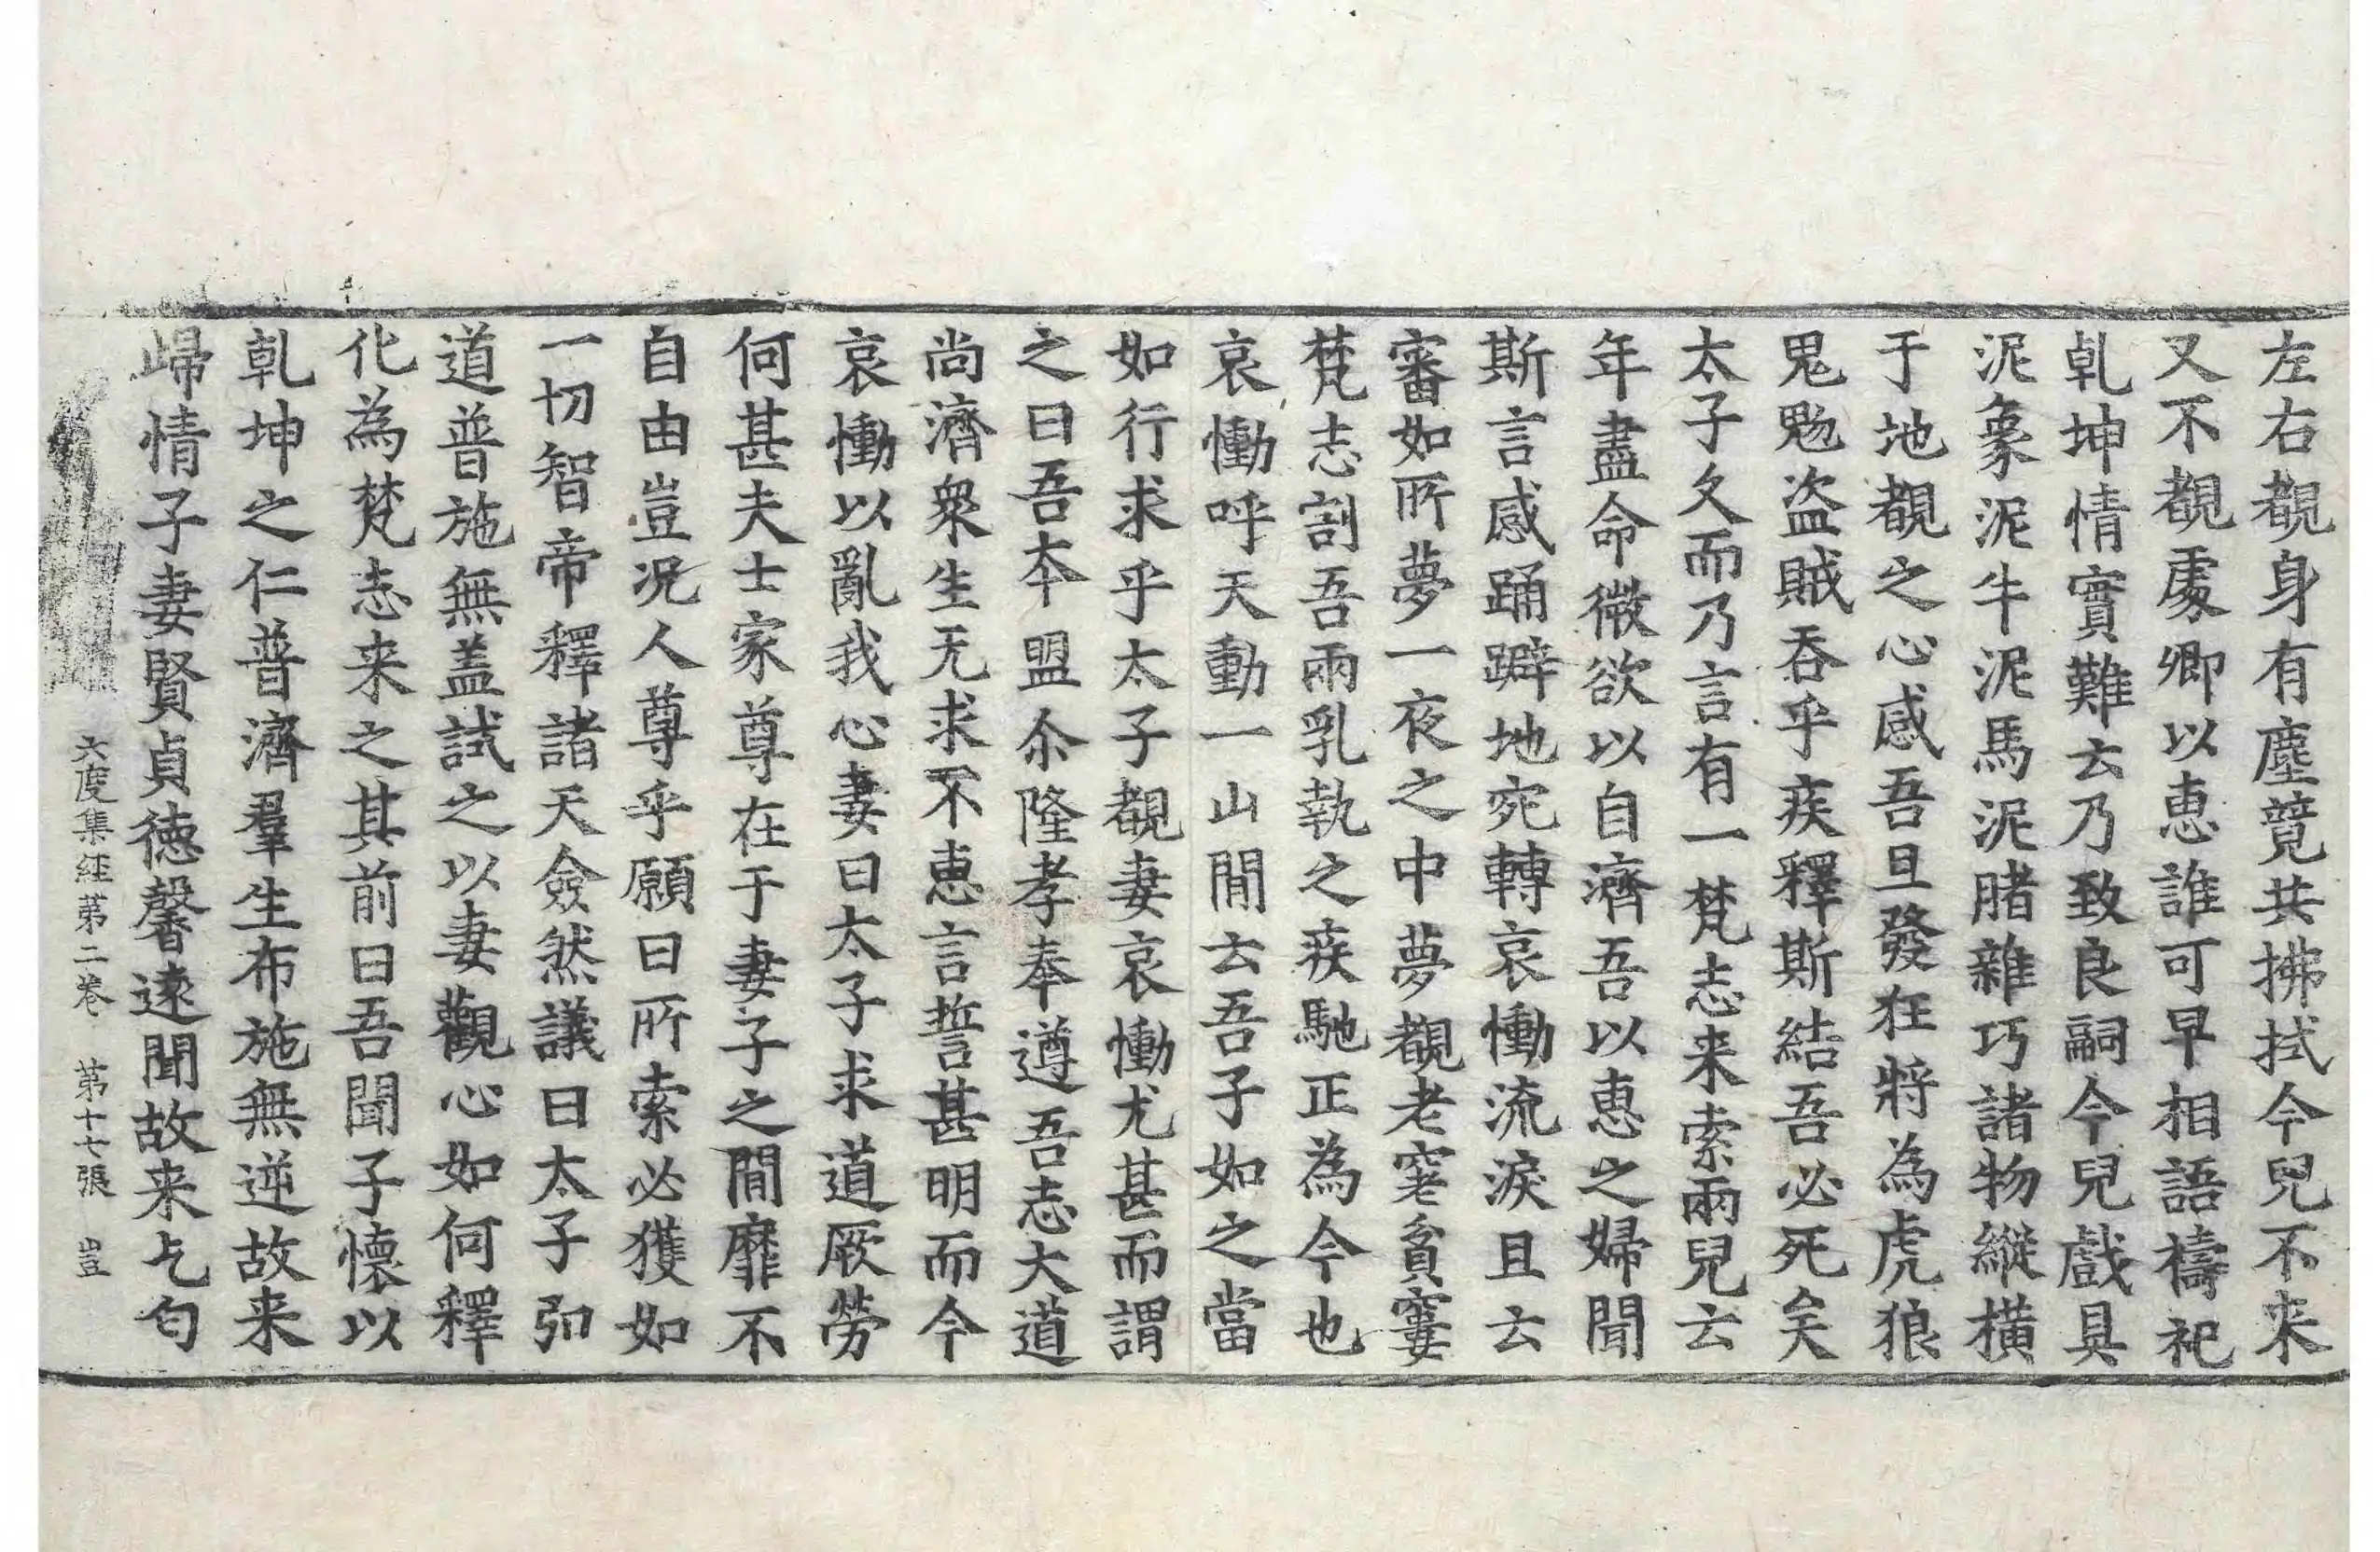 左右覩身有塵競共拂拭今兒不来
又不覩處卿以惠誰可早相語禱祀
乹坤情實難云乃致良嗣今兒戲具
泥象泥牛泥馬泥賭雜巧諸物縱橫
于地覩之心感吾且發狂將為虎狼
鬼魅盜賊吞乎疾釋斯結吾必死矣
太子久而乃言有一梵志来索兩兒云
年盡命微欲以自濟吾以惠之婦聞
斯言感踊躃地宛轉哀慟流淚且云
審如所夢一夜之中夢覩老窶貧窶
梵志割吾兩乳執之疾馳正為今也
哀慟呼天動一山閒云吾子如之當
如行求乎太子覩妻哀慟尤甚而謂
之曰吾本盟尒隆孝奉遵吾志大道
尚濟衆生无求不惠言誓甚明而今
哀慟以亂我心妻曰太子求道厥勞
何甚夫士家尊在于妻子之閒靡不
自由豈况人尊乎願曰所索必獲如
一切智帝釋諸天僉然議曰太子弘
道普施無盖試之以妻觀心如何釋
化為梵志来之其前曰吾聞子懷以
乹坤之仁普濟羣生布施無逆故来
歸情子妻賢貞德馨遠聞故来乞匄
六度集経苐二卷 苐十七張 豈